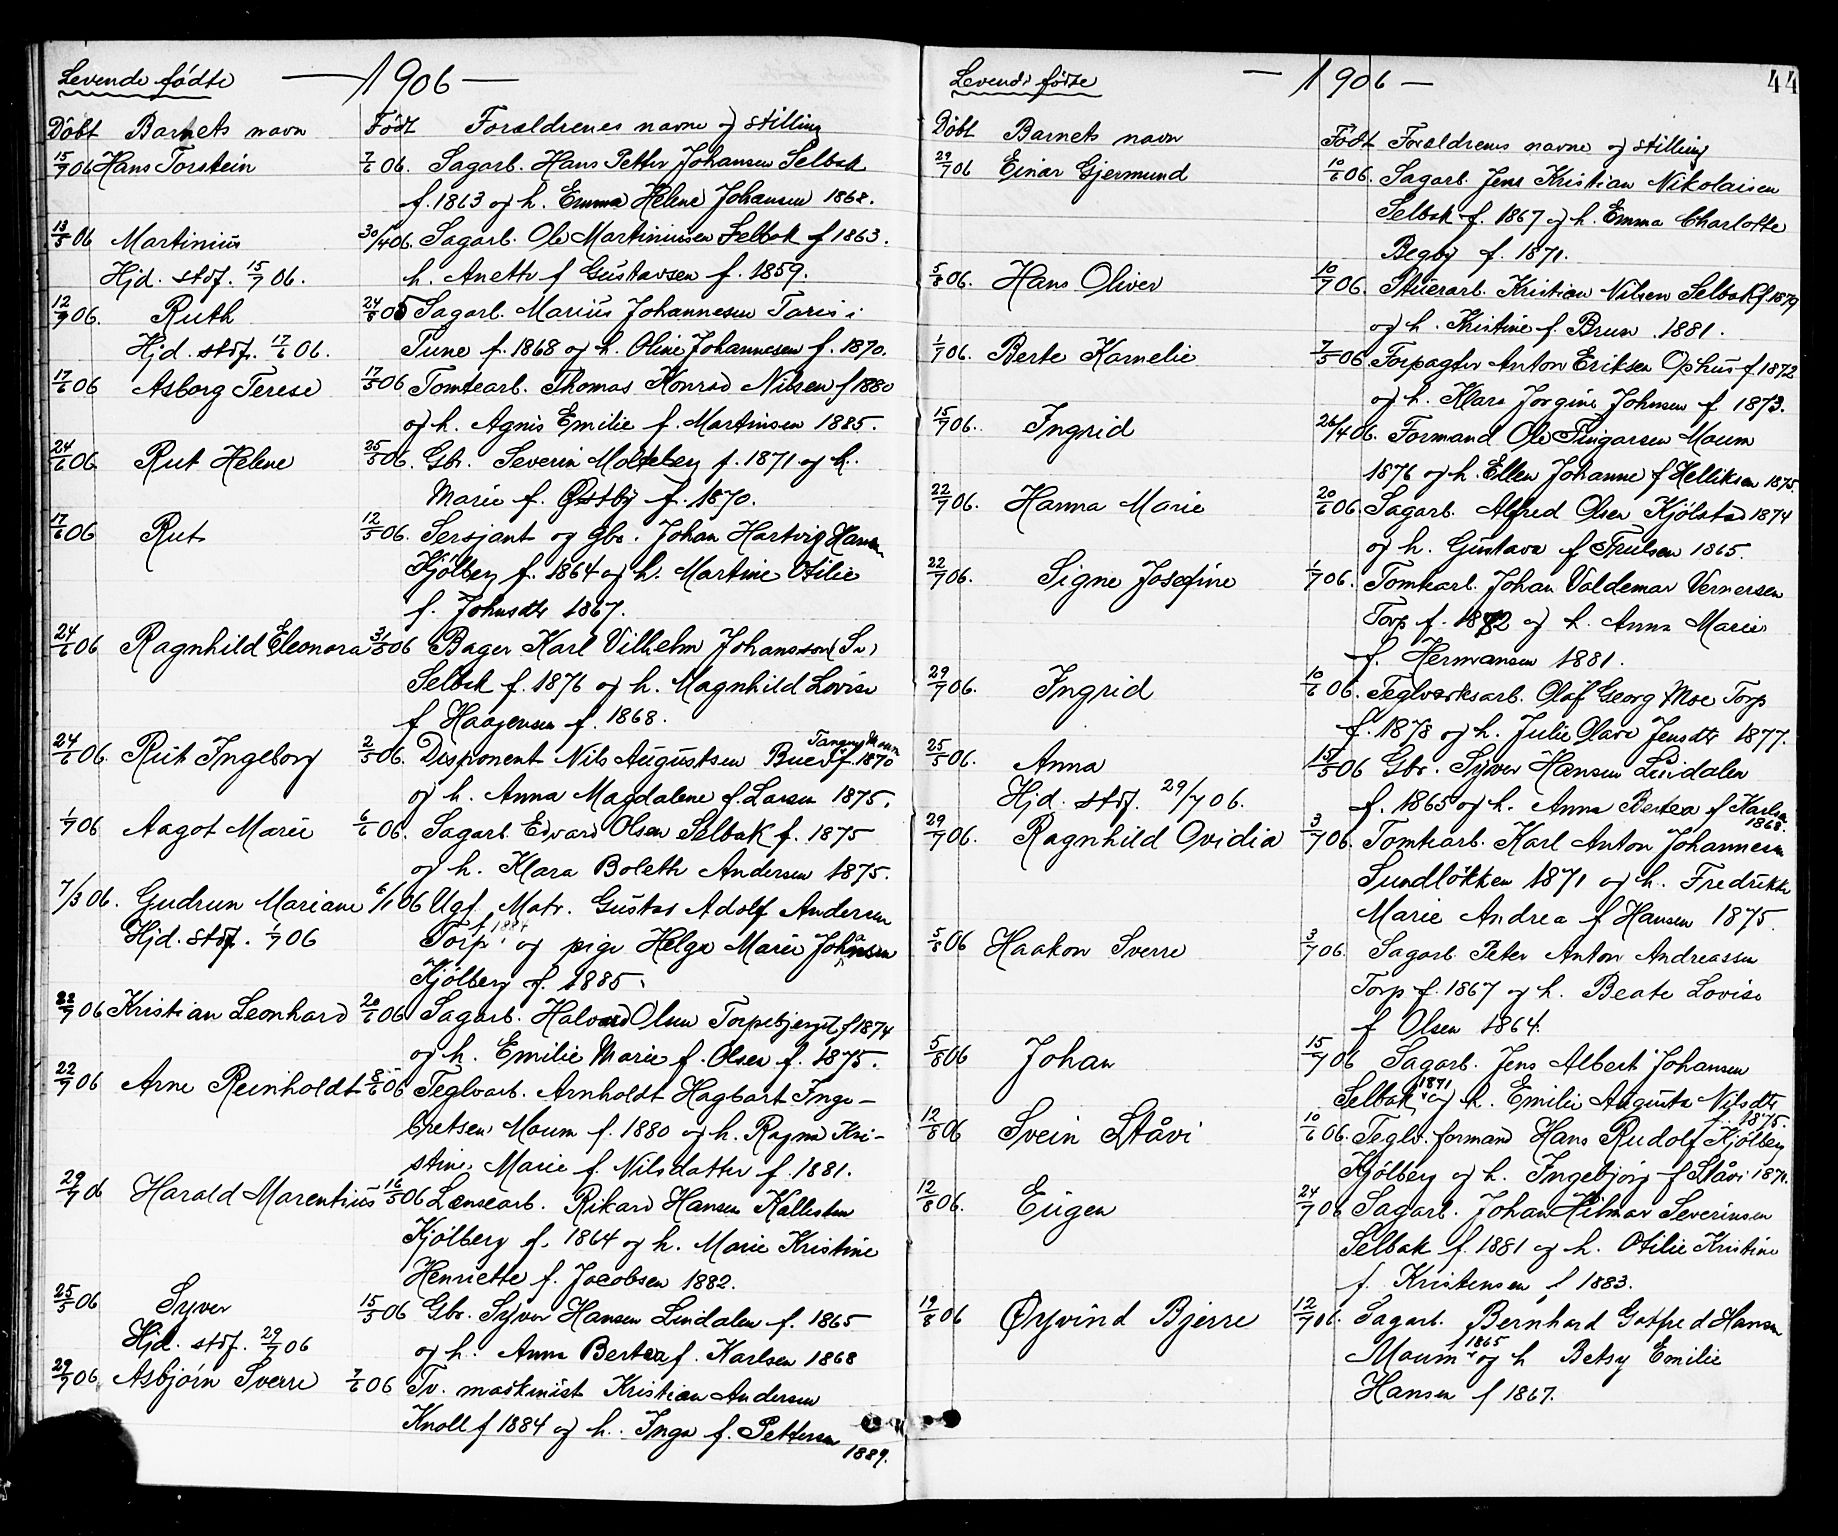 Levende fødte — 1906 —
Döbt Barnets navn Født Forældrenes navne og stilling
15/7 06 Hans Torstein 7/6 06. Sagarb. Hans Petter Johansen Selbak
f. 1863 og h. Emma Helene Johansen 1868.
13/5 06 Martinius 30/4 06. Sagarb. Ole Martiniusen Selbak f 1863.
Hjd. stdf. 15/7 06. h. Anette f Gustavsen f. 1859.
12/9 06. Ruth 24/8 05 Sagarb. Marius Johannesen Taris i
Hjd. stdf. 17/6 06. Tune f. 1868 og h. Oline Johannesen f. 1870.
17/6 06 Asborg Terese 17/5 06 Tomtearb. Thomas Konrad Nilsen f 1880
og h. Agnes Emilie f. Martinsen 1885.
24/6 06. Rut Helene 25/5 06. Gbr. Severin Molteberg f. 1871 og h.
Marie f. Østby f. 1870.
17/6 06 Rut 12/5 06. Sersjant og Gbr. Johan Hartvig Hansen
Kjölberg f. 1864 og h. Martine Otilie
f. Johnsdtr 1867.
24/6 06 Ragnhild Eleonora 31/5 06 Bager Karl Vilhelm Johansson (Sv)
Selbak f. 1876 og h. Magnhild Lovise
f Haagensen f. 1868.
24/6 06. Rut Ingeborg 2/5 06. Disponent Nils Augustsen Buer f. 1870
og h. Anna Magdalene f. Larsen 1875.
1/7 06 Aagot Marie 6/6 06. Sagarb. Edvard Olsen Selbak f. 1875
og h. Klara Bolette Andersen 1875.
7/3 06. Gudrun Mariane 6/1 06 Ugf. Matr. Gustav Adolf Andersen
Hjd. stdf. 1/7 06 Torp f. 1884 og pige Helga Marie Johansen
Kjölberg f. 1885.
22/7 06 Kristian Leonhard 20/6 06 Sagarb. Halvard Olsen Torpebjerget f 1874
og h. Emilie Marie f. Olsen f. 1875.
22/7 06 Arne Reinholdt 8/6 06 Teglvarb. Arnholdt Hagbart Inge-
bretsen Moum f. 1880 og h. Ragna Kri-
stine Marie f. Nilsdatter f. 1881.
29/7 06 Harald Marentius 16/5 06 Lensearb. Rikard Hansen Kallesten
Kjölberg f. 1864 og h. Marie Kristine
Henriette f. Jacobsen 1882.
25/5 06 Syver 15/5 06 Gbr. Syver Hansen Lindalen f. 1865
Hjd. stdf. 29/7 06 og h. Anna Bertea f. Karlsen 1868
29/7 06 Asbjörn Sverre 7/6 06 Tv. maskinist Kristian Andersen
Knoll f 1884 og h. Inga f. Pettersen
1889.
Levende fødte — 1906 — 44
Döbt Barnets navn Født Forældrenes navne og stilling
29/7 06 Einar Gjermund 10/6 06. Sagarb. Jens Kristian Nikolaisen
Selbak f. 1867 og h. Emma Charlotte
Begby f. 1871.
5/8 06. Hans Oliver 10/7 06. Stuerarb. Kristian Nilsen Selbak f 1879
og h. Kristine f. Brun 1881.
1/7 06. Berte Kornelie 7/5 06 Forpagter Anton Eriksen Ophus f. 1872
og h. Klara Jorgine Johnsen f 1873.
15/7 06. Ingrid 26/4 06. Formand Ole Tingarsen Moum
1876 og h. Ellen Johanne f Helliksen 1875.
22/7 06. Hanna Marie 20/6 06 Sagarb. Alfred Olsen Kjölstad 1874
og h. Gustava f Trulsen 1865.
22/7 06. Signe Josefine 1/7 06. Tomtearb. Johan Valdemar Vernersen
Torp f. 1872 og h. Anna Marie
f. Hermansen 1881.
29/7 06. Ingrid 10/6 06. Teglverksarb. Olaf Georg Moe Torp
f. 1878 og h. Julie Olava Jensdtr 1877.
25/5 06. Anna 15/5 06 Gbr. Syver Hansen Lindalen
Hjd. stdf. 29/7 06. f. 1865 og h. Anna Bertea f Karlsen
1868.
29/7 06. Ragnhild Ovidia 3/7 06. Tomtearb. Karl Anton Johannesen
Sundlökken 1871 og h. Fredrikke
Marie Andrea f Hansen 1875.
5/8 06 Haakon Sverre 3/7 06. Sagarb. Peter Anton Andreassen
Torp f. 1867 og h. Beate Lovise
f Olsen 1864.
5/8 06 Johan 15/7 06 Sagarb. Jens Albert Johansen
Selbak 1871 og h. Emilie Augusta Nilsdtr
f. 1875.
12/8 06 Svein Ståvi 10/6 06. Teglv. formand Hans Rudolf Kjölberg
Kjölberg og h. Ingebjörg f Ståvi 1871.
12/8 06. Eugen 24/7 06 Sagarb. Johan Hilmar Severinsen
Selbak f. 1881 og h. Otilie Kristine
f. Kristensen f 1883.
19/8 06 Øyvind Bjerre 12/7 06. Sagarb. Bernhard Gotfred Hansen
Moum 1865 og h Betsy Emilie
Hansen f 1867.